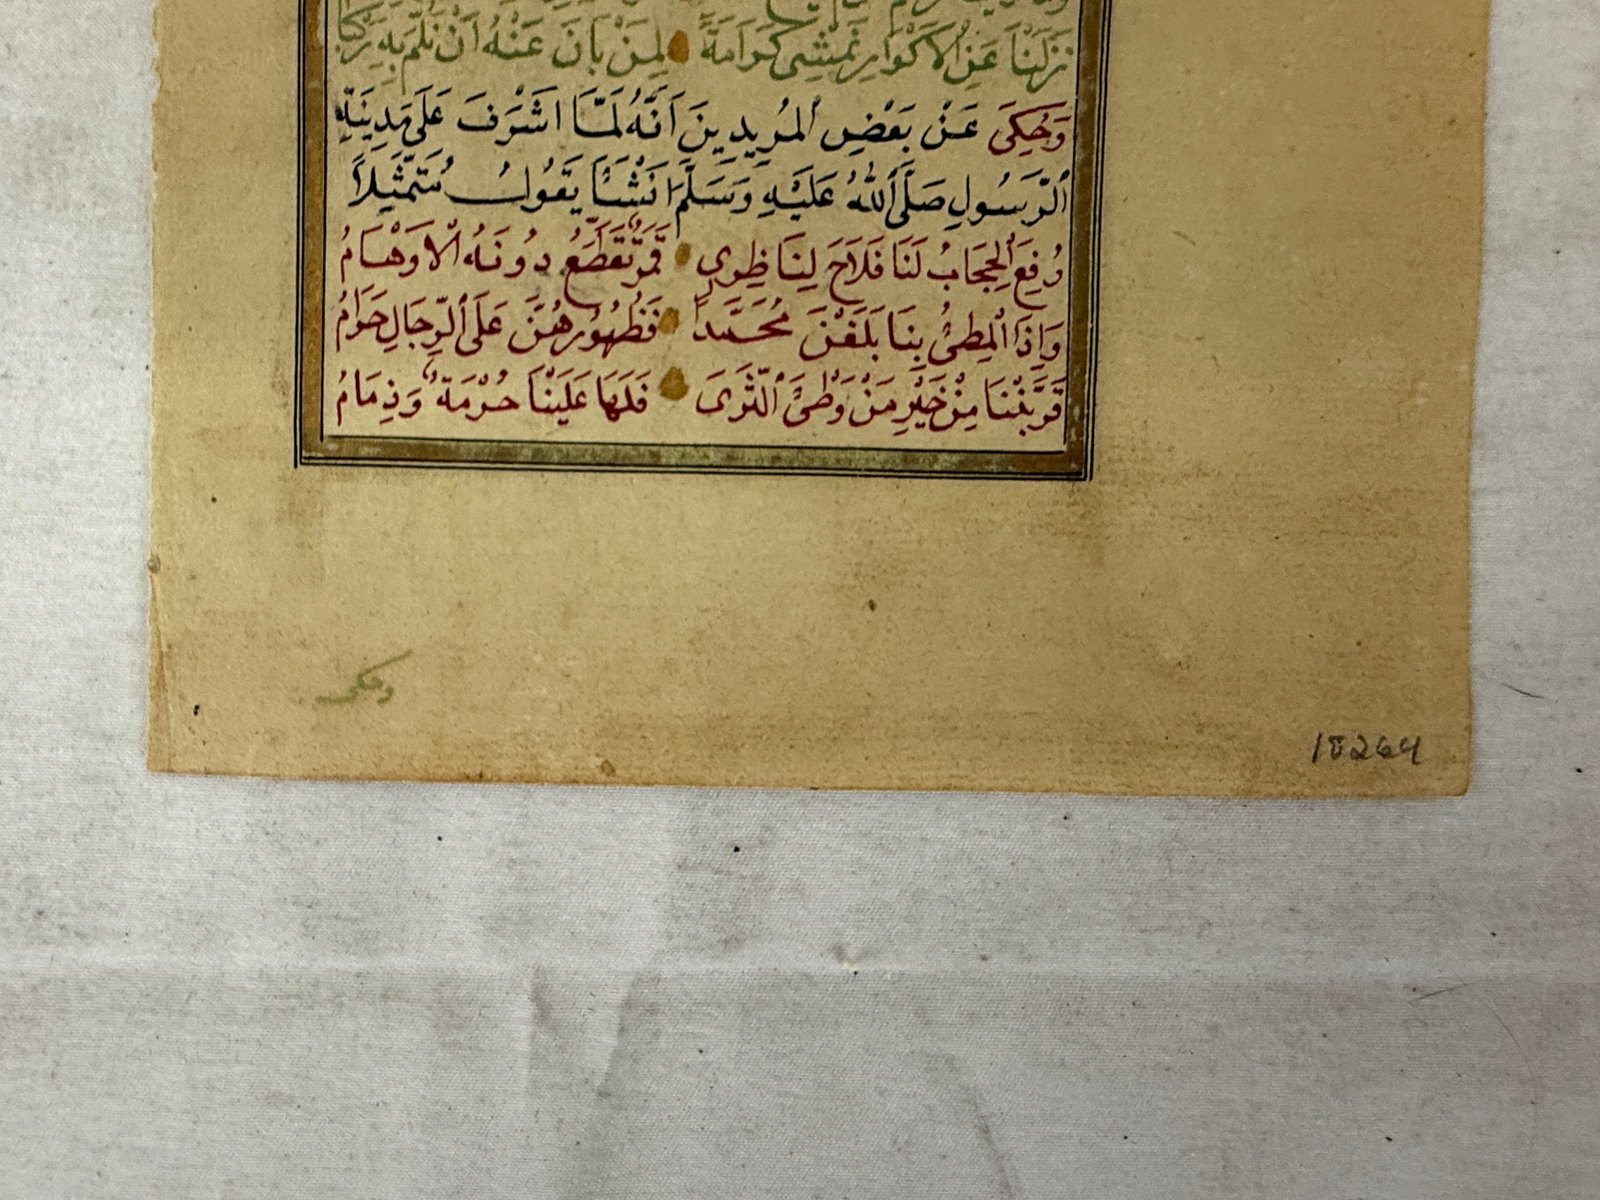 نَزَلْنَا عَنِ الْاَكْوَارِ نَمْشِى كَرَامَةً لِمَنْ بَانَ عَنْهُ اَنْ نُلِمَّ بِهِ رَكْبَا
وَحُكِىَ عَنْ بَعْضِ الْمُرِيدِينَ اَنَّهُ لَمَّا اَشْرَفَ عَلَى مَدِينَةِ
الرَّسُولِ صَلَّى اللّٰهُ عَلَيْهِ وَسَلَّمَ اَنْشَأَ يَقُولُ مُتَمَثِّلاً
رُفِعَ الْحِجَابُ لَنَا فَلَاحَ لِنَاظِرِى قَمَرٌ تَقَطَّعُ دُونَهُ الْاَوْهَامُ
وَاِذَا الْمَطِىُّ بِنَا بَلَغْنَ مُحَمَّداً فَظُهُورُهُنَّ عَلَى الرِّجَالِ حَرَامُ
قَرَّبْنَنَا مِنْ خَيْرِ مَنْ وَطِئَ الثَّرَى فَلَهَا عَلَيْنَا حُرْمَةٌ وَذِمَامُ
وحكى
18264